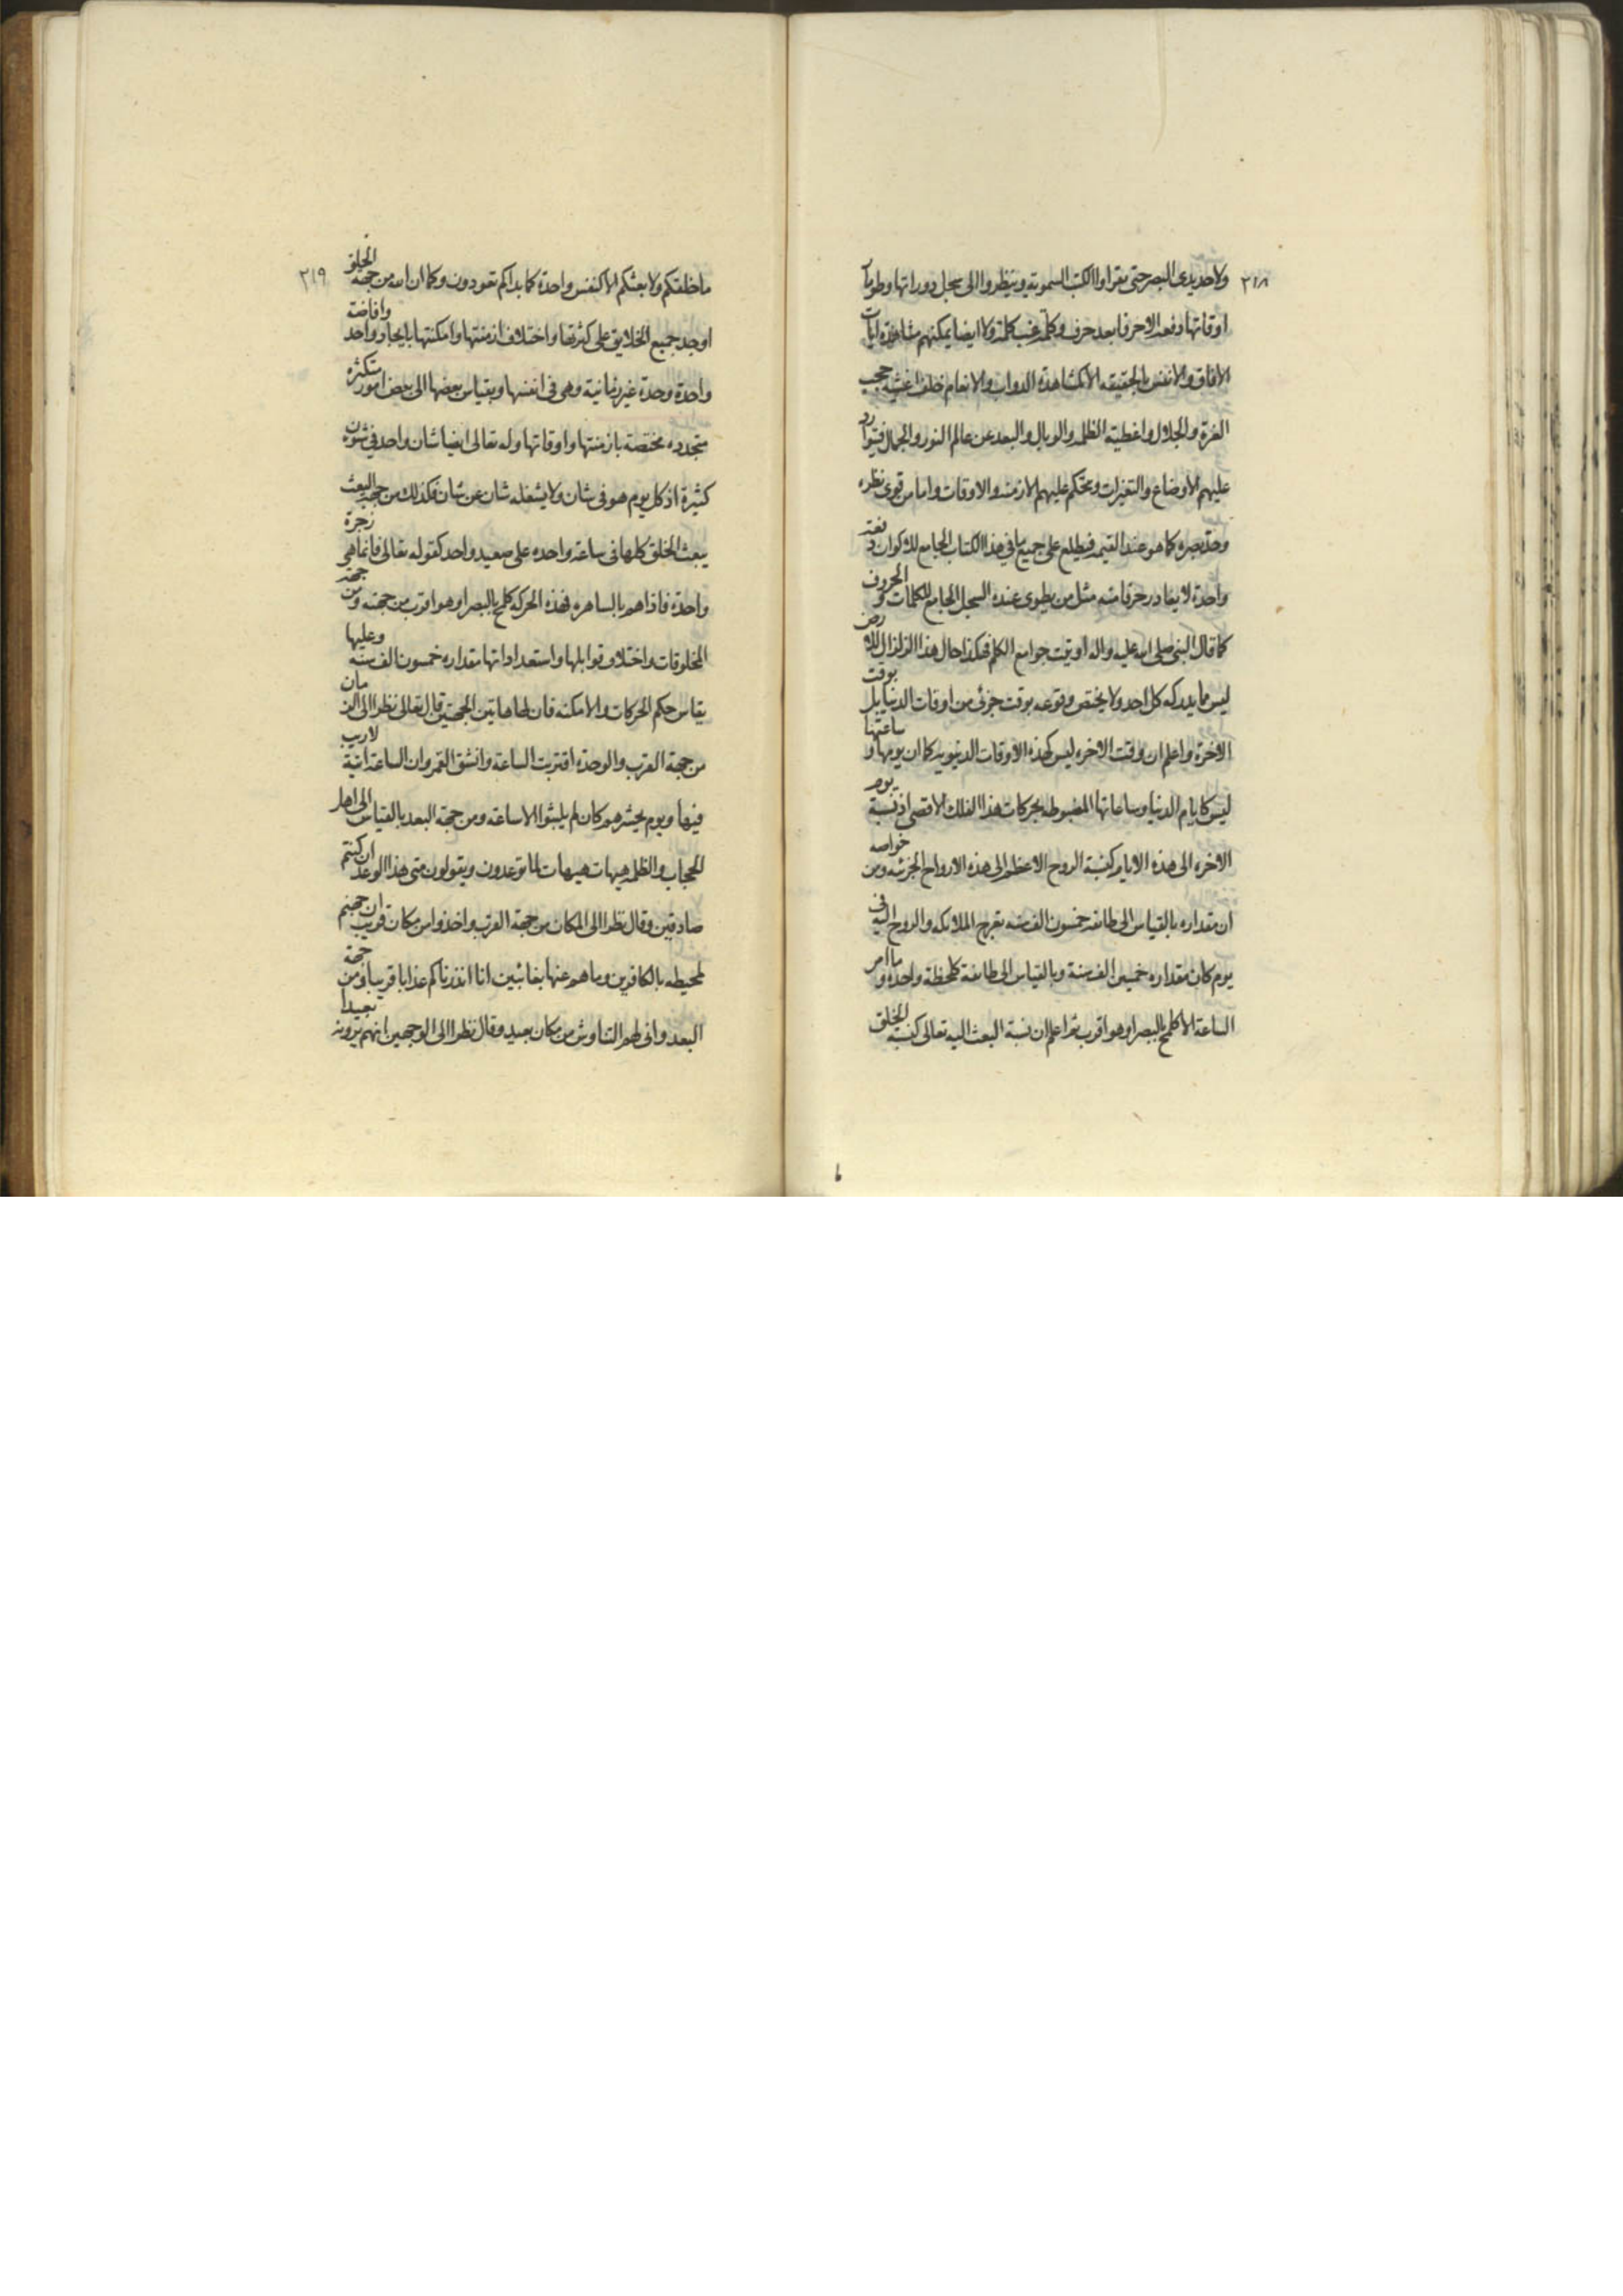 ٢١٨
ولا حديدى البصر حتى يقراوا الكتب السموتيه وينظروا الى سجل دوراتها وطومار
اوقاتها دفعه الا حرفا بعد حرف وكلمه غب كلمة ولا ايضا يمكنهم مشاهدة ايات
الافاق والانفس بالحقيقه الا كمشاهدة الدواب والانعام خلف اغشيه حجب
العزة والجلال واغطيه الظلمه والوبال والبعد عن عالم النور والجمال فيتوارد
عليهم الاوضاع والتغيرات ويحكم عليهم الازمنه والاوقات واما من قوى نظره
وحد بصره كما هو عند القيمه فيطلع على جميع ما في هذا الكتاب الجامع للاكوان دفعة
واحدة لا يغادر حرفا منه مثل من يطوى عنده السجل الجامع للكلمات و الحروف
كما قال النبي صلى الله عليه واله اوتيت جوامع الكلم فهكذا حال هذا الزلزال للارض
ليس مما يدركه كل احد ولا يختص وقوعه بوقت جزئى من اوقات الدنيا بل بوقت
الاخرة واعلم ان وقت الاخره ليس كهذه الاوقات الدنيويه كما ان يومها و ساعتها
ليس كايام الدنيا وساعاتها المضبوطه بحركات هذا الفلك الاقصى اذ نسبة يوم
الاخره الى هذه الايام كنسبة الروح الاعظم الى هذه الارواح الجزئيه ومن خواصه
ان مقداره بالقياس الى طائفه خمسون الف سنه تعرج الملائكه والروح اليه في
يوم كان مقداره خمسين الف سنة وبالقياس الى طائفة كلحظة واحده و ما امر
الساعة الا كلمح بالبصر او هو اقرب ثم اعلم ان نسبة البعث اليه تعالى كنسبه الخلق
٢١٩
ما خلقكم ولا بعثكم الا كنفس واحدة كما بداكم تعودون وكما ان الله من جهه الخلق
اوجد جميع الخلايق على كثرتها واختلاف ازمنتها وامكنتها بايجاد واحد وافاضة
واحدة وحدة غير زمانية وهى في انفسها وبقياس بعضها الى بعض امور متكثره
متجدده مختصة بازمنتها واوقاتها وله تعالى ايضا شان واحد في شؤن
كثيرة اذ كل يوم هو فى شان ولا يشغله شان عن شان فكذلك من جهه البعث
يبعث الخلق كلها في ساعة واحده على صعيد واحد كقوله تعالى فانما هي زجرة
واحدة فاذا هم بالساهره فهذه الحركه كلمح بالبصر او هو اقرب من جهته ومن جهة
المخلوقات واختلاف قوابلها واستعداداتها مقداره خمسون الف سنه وعليها
يقاس حكم الحركات والامكنه فان لها هاتين الجهتين قال تعالى نظرا الى الزمان
من جهة القرب والوحدة اقتربت الساعة وانشق القمر وان الساعة اتية لا ريب
فيها ويوم يحشرهم كان لم يلبثوا الا ساعة ومن جهة البعد بالقياس الى اهل
الحجاب والظلمه هيهات هيهات لما توعدون ويقولون متى هذا الوعد ان كنتم
صادقين وقال نظرا الى المكان من جهة القرب واخذوا من مكان قريب ان جهنم
لمحيطه بالكافرين وما هم عنها بغائبين انا انذرناكم عذابا قريبا ومن جهة
البعد وانى لهم التناوش من مكان بعيد وقال نظرا الى الوجهين انهم يرونه بعيدا